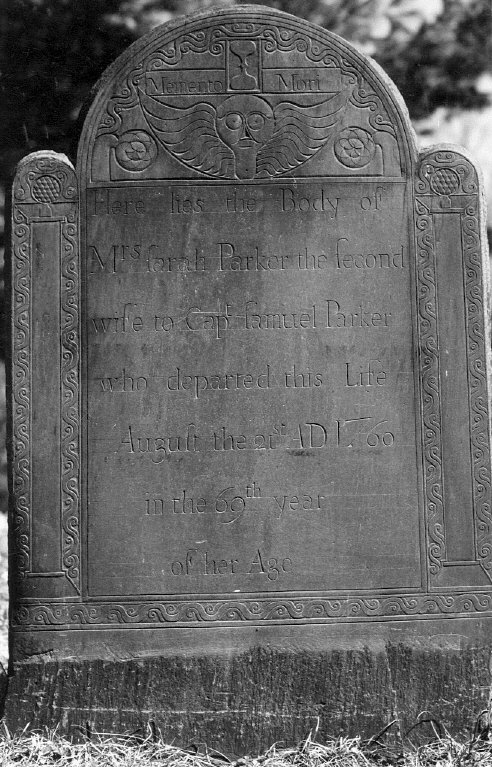 Memento Mori
Here lies the Body of
Mrs ſarah Parker the ſecond
wife to Capt ſamuel Parker
who departed this Life
August the 21st AD 1760
in the 69th year
of her Age